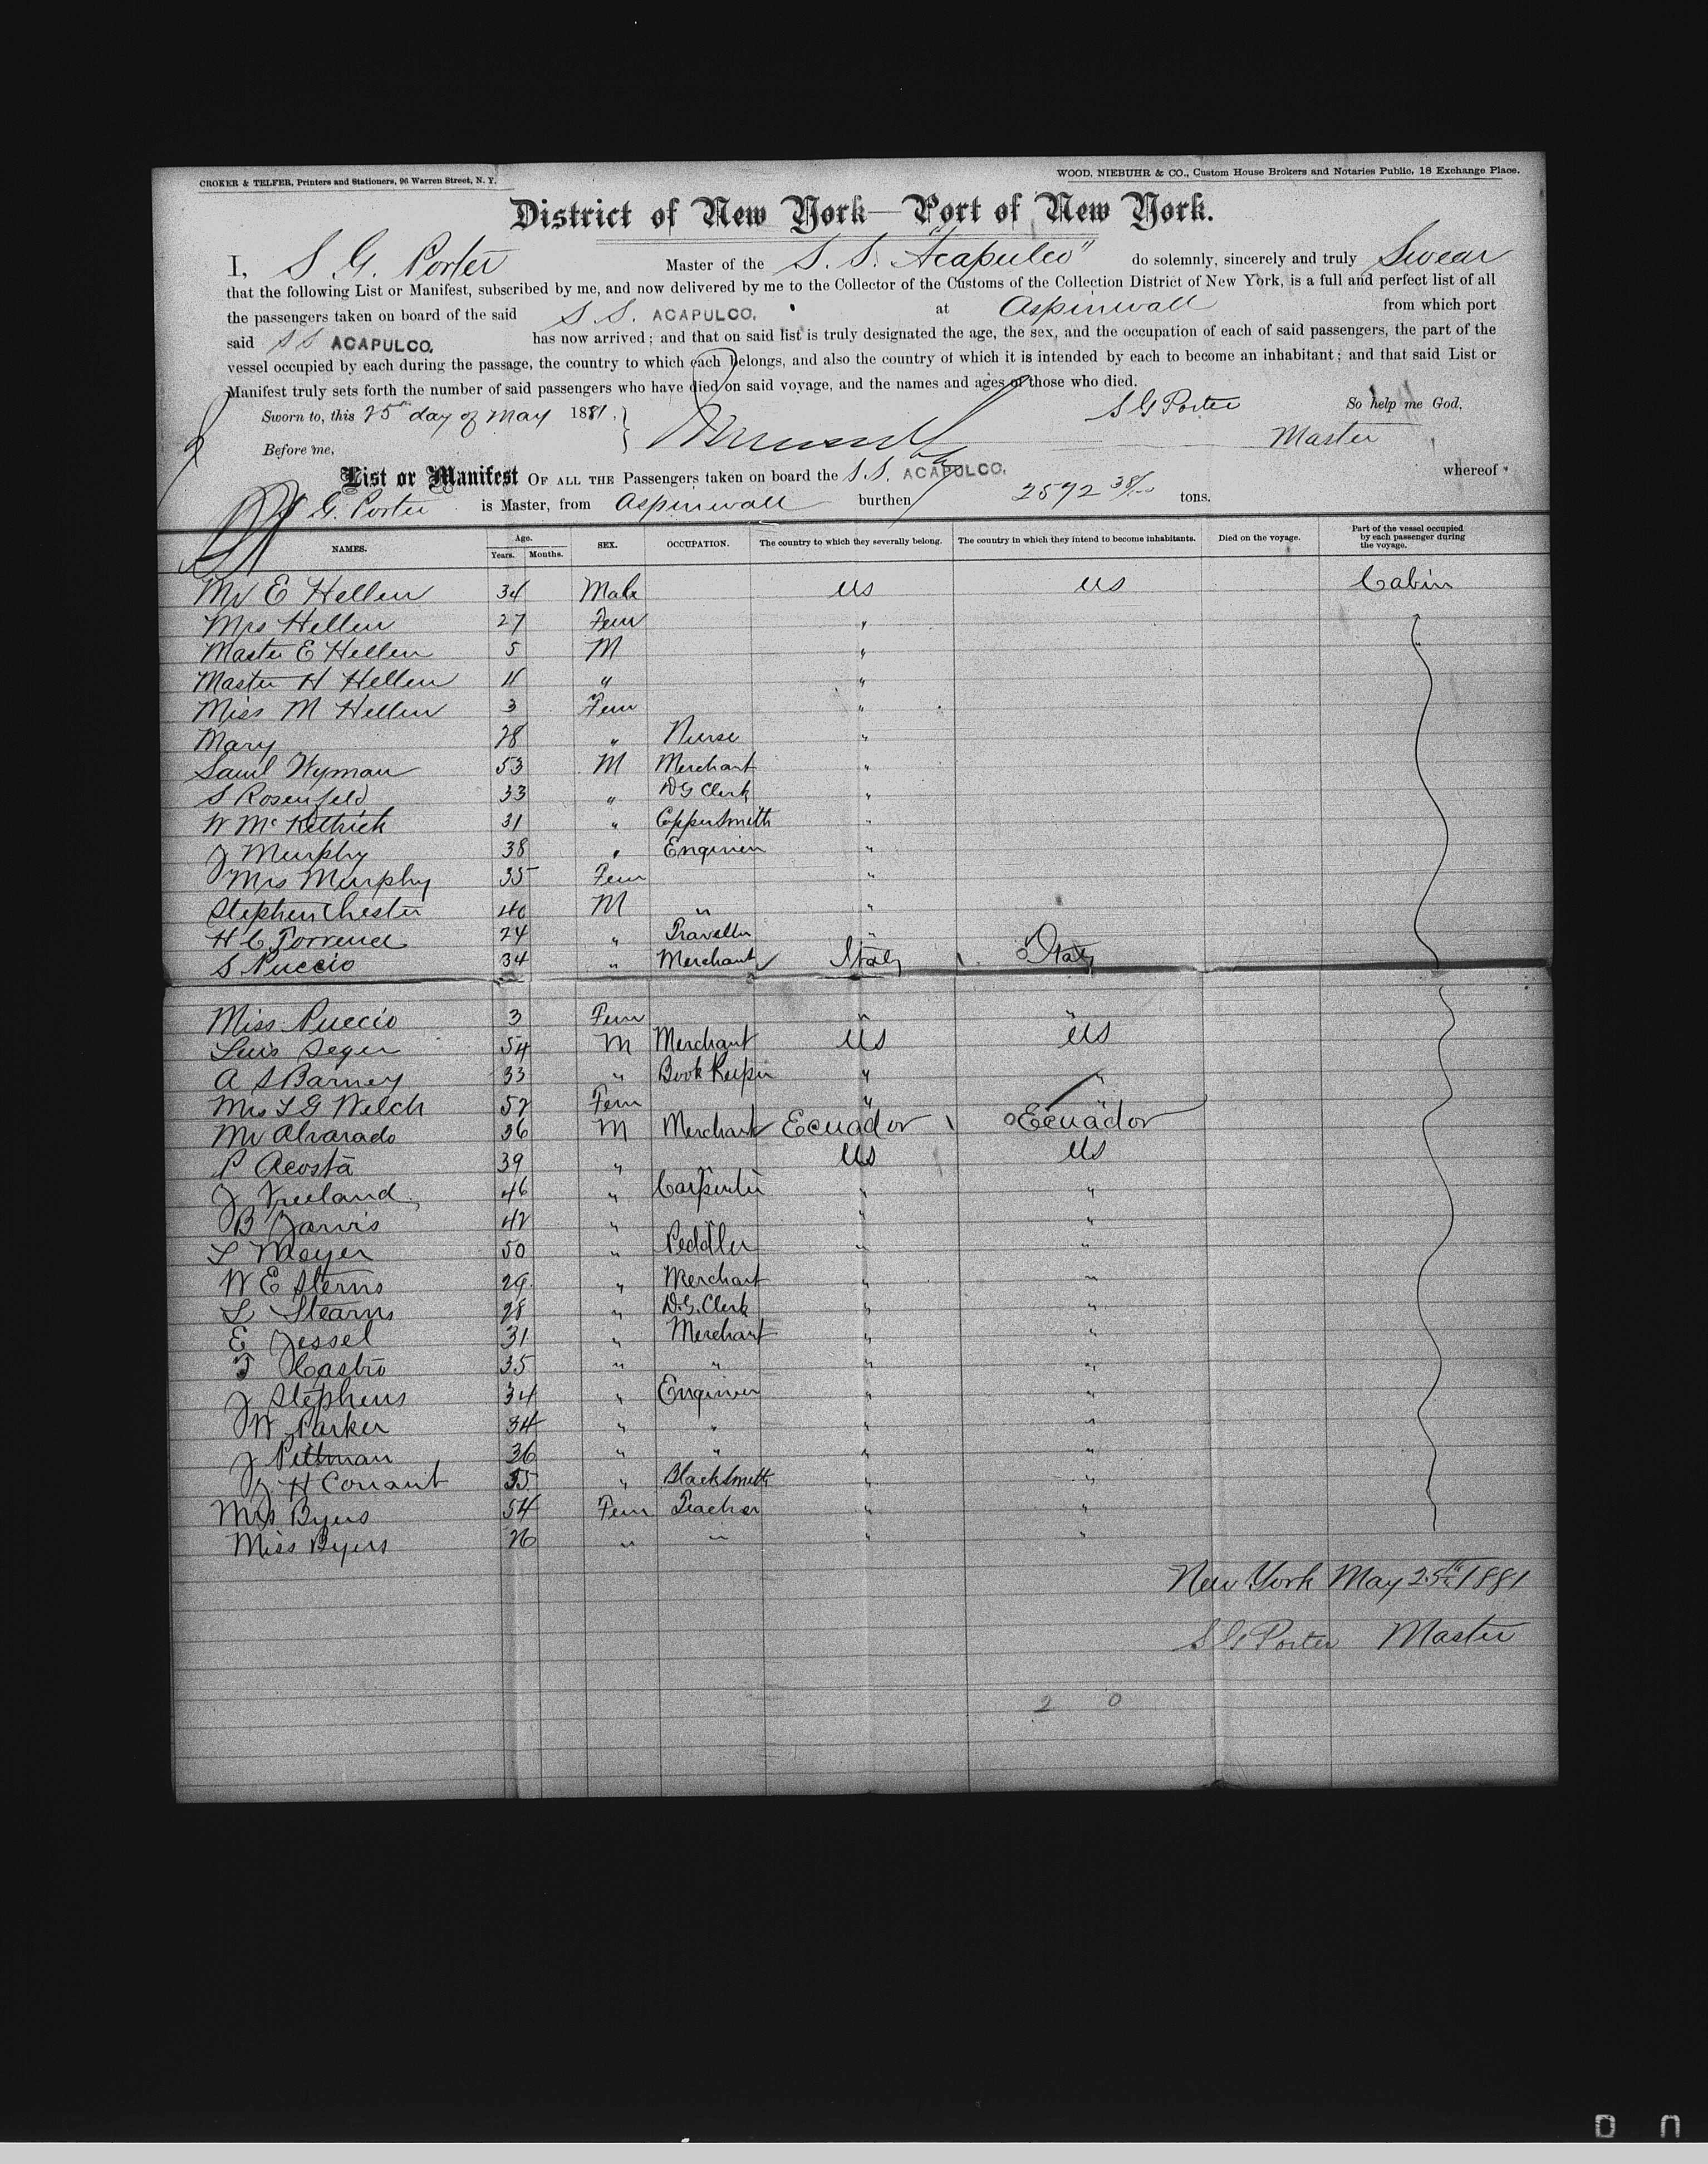 CROKER & TELFER, Printers and Stationers, 96 Warren Street, N. Y.
WOOD, NIEBUHR & CO., Custom House Brokers and Notaries Public, 18 Exchange Place.
District of New York—Port of New York.
I, S G. Porter Master of the S. S. "Acapulco" do solemnly, sincerely and truly Swear
that the following List or Manifest, subscribed by me, and now delivered by me to the Collector of the Customs of the Collection District of New York, is a full and perfect list of all
the passengers taken on board of the said S S. ACAPULCO. at Aspinwall from which port
said S S ACAPULCO. has now arrived; and that on said list is truly designated the age, the sex, and the occupation of each of said passengers, the part of the
vessel occupied by each during the passage, the country to which each belongs, and also the country of which it is intended by each to become an inhabitant; and that said List or
Manifest truly sets forth the number of said passengers who have died on said voyage, and the names and ages of those who died.
Sworn to, this 25 day of May 1881. S G Porter So help me God,
Before me, Master
List or Manifest OF ALL THE Passengers taken on board the S.S. ACAPULCO. whereof
S G. Porter is Master, from Aspinwall burthen 2572 38/100 tons.
NAMES. Age. Years. Months. SEX. OCCUPATION. The country to which they severally belong. The country in which they intend to become inhabitants. Died on the voyage. Part of the vessel occupied by each passenger during the voyage.
Mr E Hellen 34 Male US US Cabin
Mrs Hellen 27 Fem "
Master E Hellen 5 M "
Master H Hellen 4 " "
Miss M Hellen 3 Fem "
Mary 28 " Nurse "
Saml Wyman 53 M Merchant "
S Rosenfeld 33 " D G Clerk "
W McKettrick 31 " CopperSmith "
J Murphy 38 " Engineer "
Mrs Murphy 35 Fem "
Stephen Chester 40 M " "
H C Torrend 24 " Traveller "
S Puccio 34 " Merchant Italy Italy
Miss Puccio 3 Fem " "
Luis Seger 54 M Merchant US US
A S Barney 33 " Book Keeper " "
Mrs L G Welch 52 Fem " "
Mr Alvarado 36 M Merchant Ecuador Ecuador
P Acosta 39 " " US US
J Freeland 46 " Carpenter " "
B Jarvis 42 " " " "
L Meyer 50 " Peddler " "
W E Sterns 29 " Merchant " "
L Stearns 28 " D.G. Clerk " "
E Jessel 31 " Merchant " "
F Castro 35 " " " "
J Stephens 34 " Engineer " "
J W Parker 34 " " " "
J Pittman 36 " " " "
J. H Conant 35 " BlackSmith " "
Mrs Byers 54 Fem Teacher " "
Miss Byers 26 " " " "
New York May 25th 1881
S G Porter Master
2 0